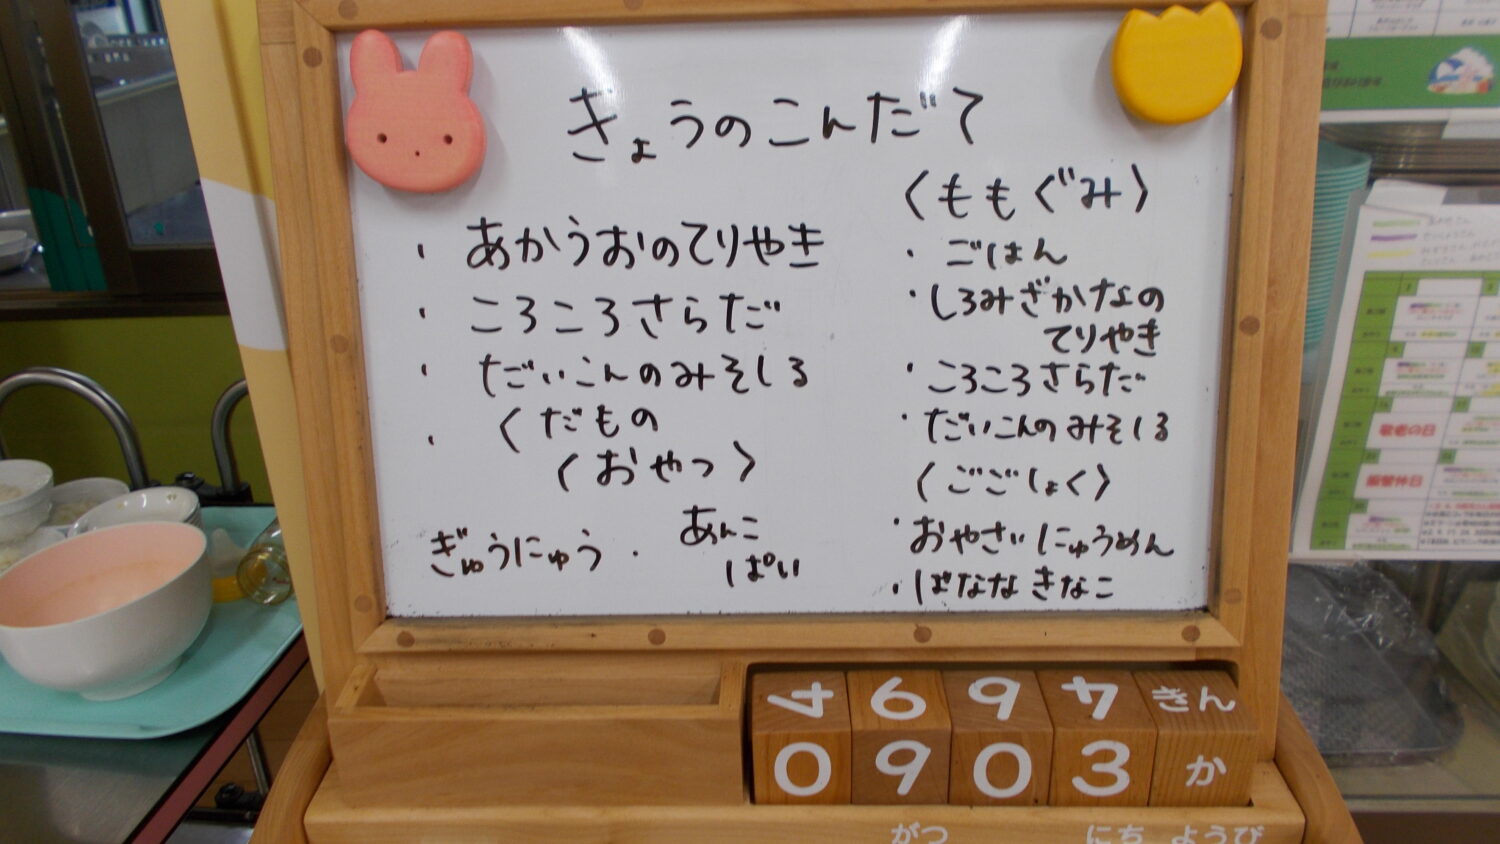 きょうのこんだて
・あかうおのてりやき
・ころころさらだ
・だいこんのみそしる
・くだもの
〈おやつ〉
ぎゅうにゅう・あんこ
ぱい
〈ももぐみ〉
・ごはん
・しろみざかなの
てりやき
・ころころさらだ
・だいこんのみそしる
〈ごごしょく〉
・おやさいにゅうめん
・ばななきなこ
4 6 9 4 きん
0 9 0 3 か
がつ にち ようび
敬老の日
振替休日